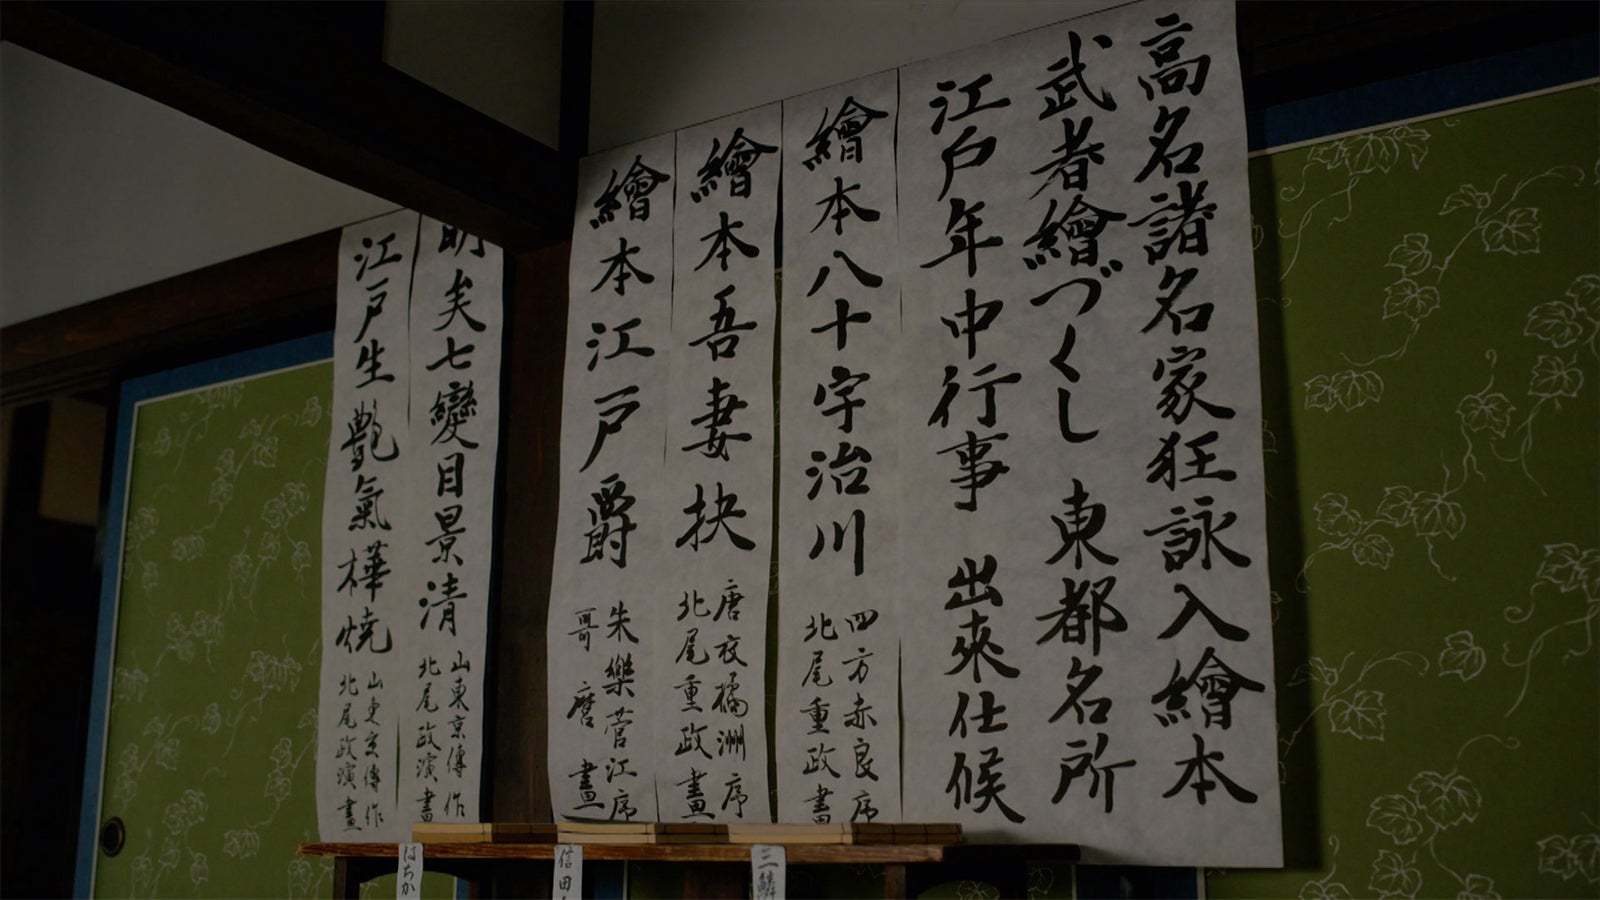 高名諸名家狂詠入繪本
武者繪づくし 東都名所
江戸年中行事 出來仕候
繪本八十宇治川
四方赤良序
北尾重政畫
繪本吾妻抉
唐衣橘洲序
北尾重政畫
繪本江戸爵
朱樂菅江序
哥麿畫
明矣七變目景清
山東京傳作
北尾政演畫
江戸生艶氣樺燒
山東京傳作
北尾政演畫
三鱗
信田
はちか